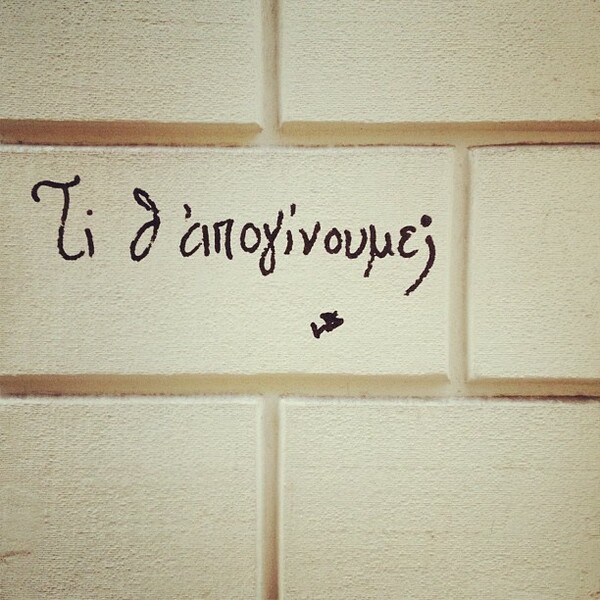 Τι θ' απογίνουμε;